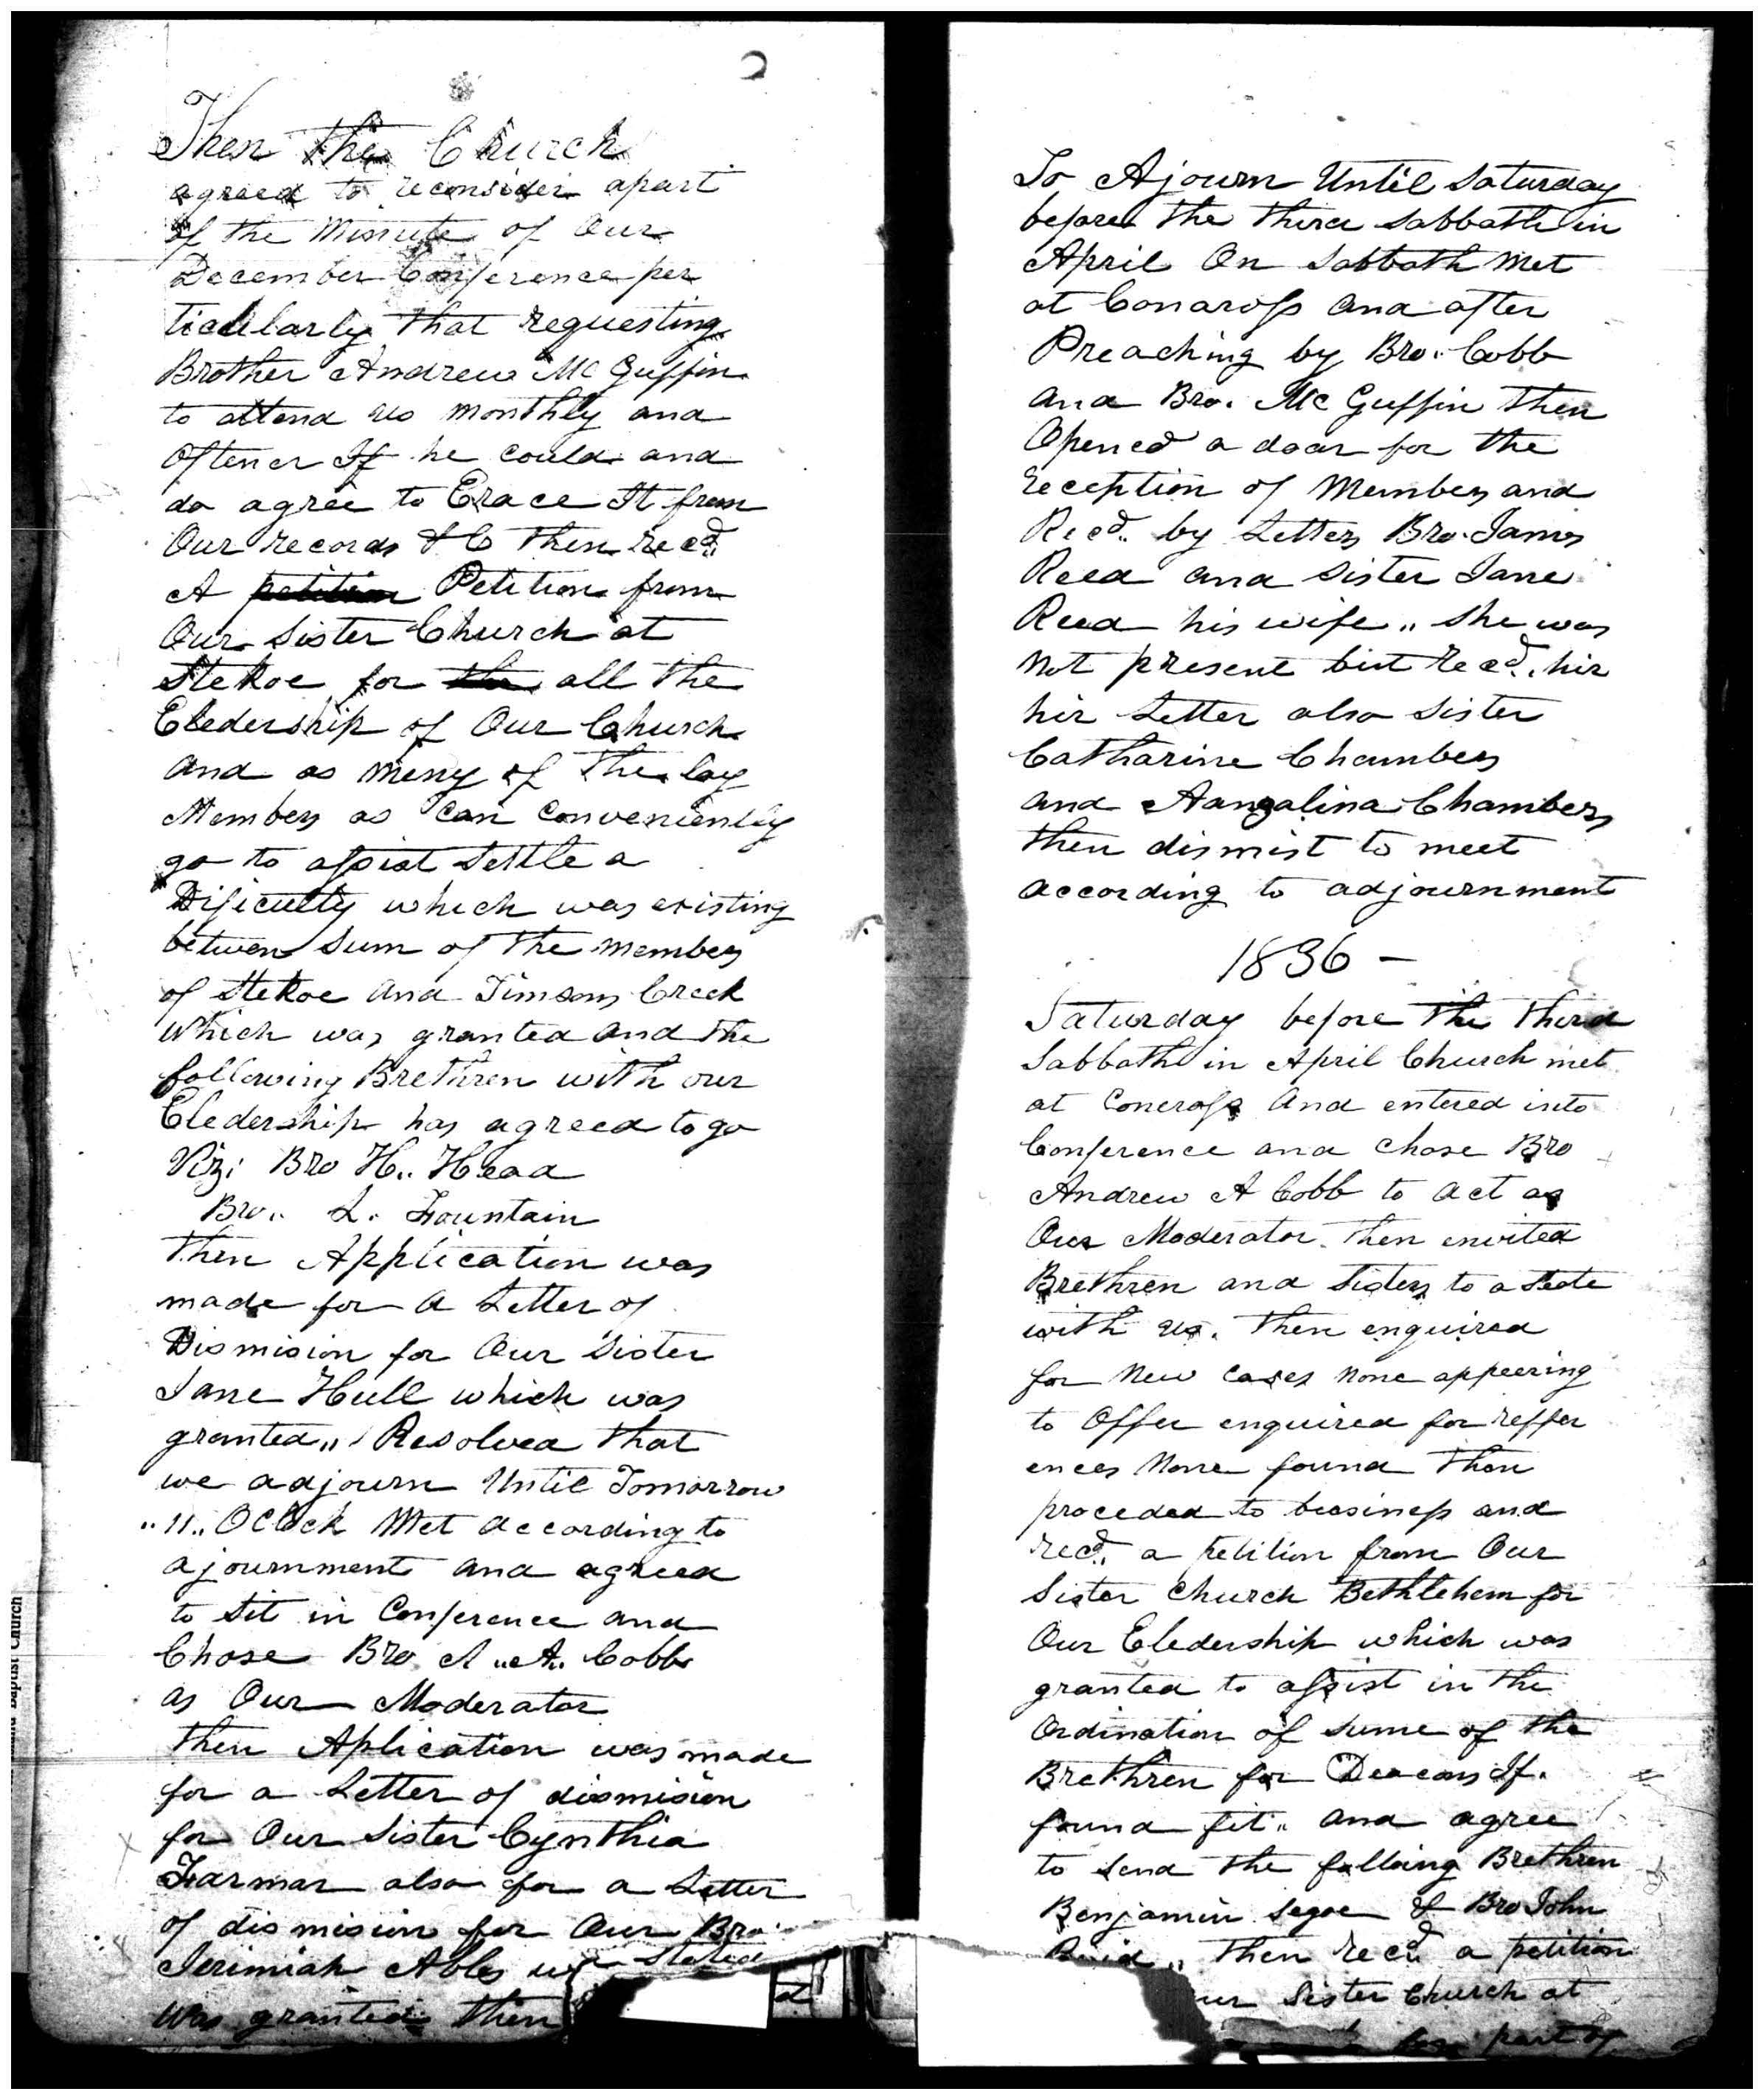 2
Then the Church
agreed to reconsider apart
of the Minute of Our
December Conference per
ticularly that requesting
Brother Andrew Mc Guffin
to attend us monthly and
oftener If he could and
do agree to Erace It from
Our records &C then recd.
A petition Petition from
Our Sister Church at
Stekoe for the all the
Eledership of Our Church
and as meny of the lay
Members as can conveniently
go to assist Settle a
Dificulty which was existing
betwen Sum of the members
of Stekoe and Timsons Creek
which was granted and the
following Brethren with our
Eledership has agreed to go
Viz; Bro H.. Head
Bro.. L. Fountain
then Application was
made for a Letter of
Dismision for Our Sister
Jane Hull which was
granted,, Resolved that
we adjourn Until Tomorrow
"11.. OClock Met according to
ajournment and agreed
to Sit in Conference and
Chose Bro A ..A.. Cobb
as Our Moderator
then Aplication was made
for a Letter of dismision
for Our Sister Cynthia
Farmar also for a Letter
of dismision for Our Bro.
Jerimiah Ables we Stated
was granted then
To Ajourn Until Saturday
before the third Sabbath in
April On Sabbath Met
at Conaross and after
Preaching by Bro. Cobb
and Bro. Mc Guffin then
Opened a door for the
reception of Members and
Recd.. by Letters Bro. James
Reed and Sister Jane
Reed his wife,, She was
not present but recd. hir
hir Letter also Sister
Catharine Chambers
and Aangalina Chambers
then dismist to meet
according to adjournment
1836 -
Saturday before the third
Sabbath in April Church met
at Coneross And entered into
Conference and Chose Bro
Andrew A Cobb to act as
Our Moderator. then envited
Brethren and Sisters to a Seate
with us. then enquired
for New Cases None appeering
to Offer enquired for reffer
ences None found then
proceded to business and
recd.. a petition from Our
Sister Church Bethlehem for
Our Eledership which was
granted to assist in the
Ordination of Sume of the
Brethren for Deacons If.
found fit.. and agree
to Send the following Brethren
Benjamin Segoe & Bro John
then recd a petition
Sister Church at
part of
Baptist Church